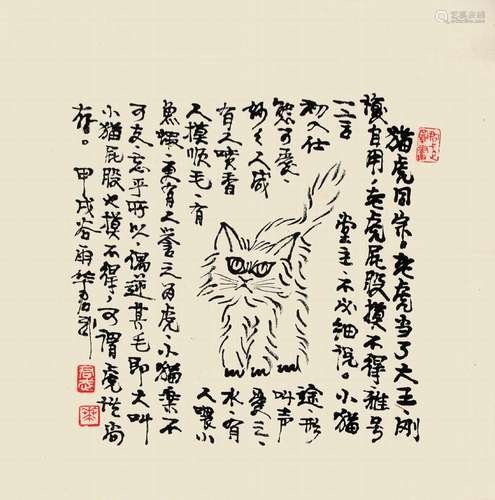 猫虎同宗，老虎当了大王，刚
愎自用，老虎屁股摸不得，雅号
一言堂主，不必细说。小猫
初入仕途，形
态可爱，叫声
妙々，人咸爱之，
有人喷香水，有
人摸顺毛，有人喂小
鱼蝦，更有人誉之为虎，小猫乐不
可支，忘乎所以，偶逆其毛即大叫
小猫屁股也摸不得，可谓虎性尚
存。甲戌谷雨华君武